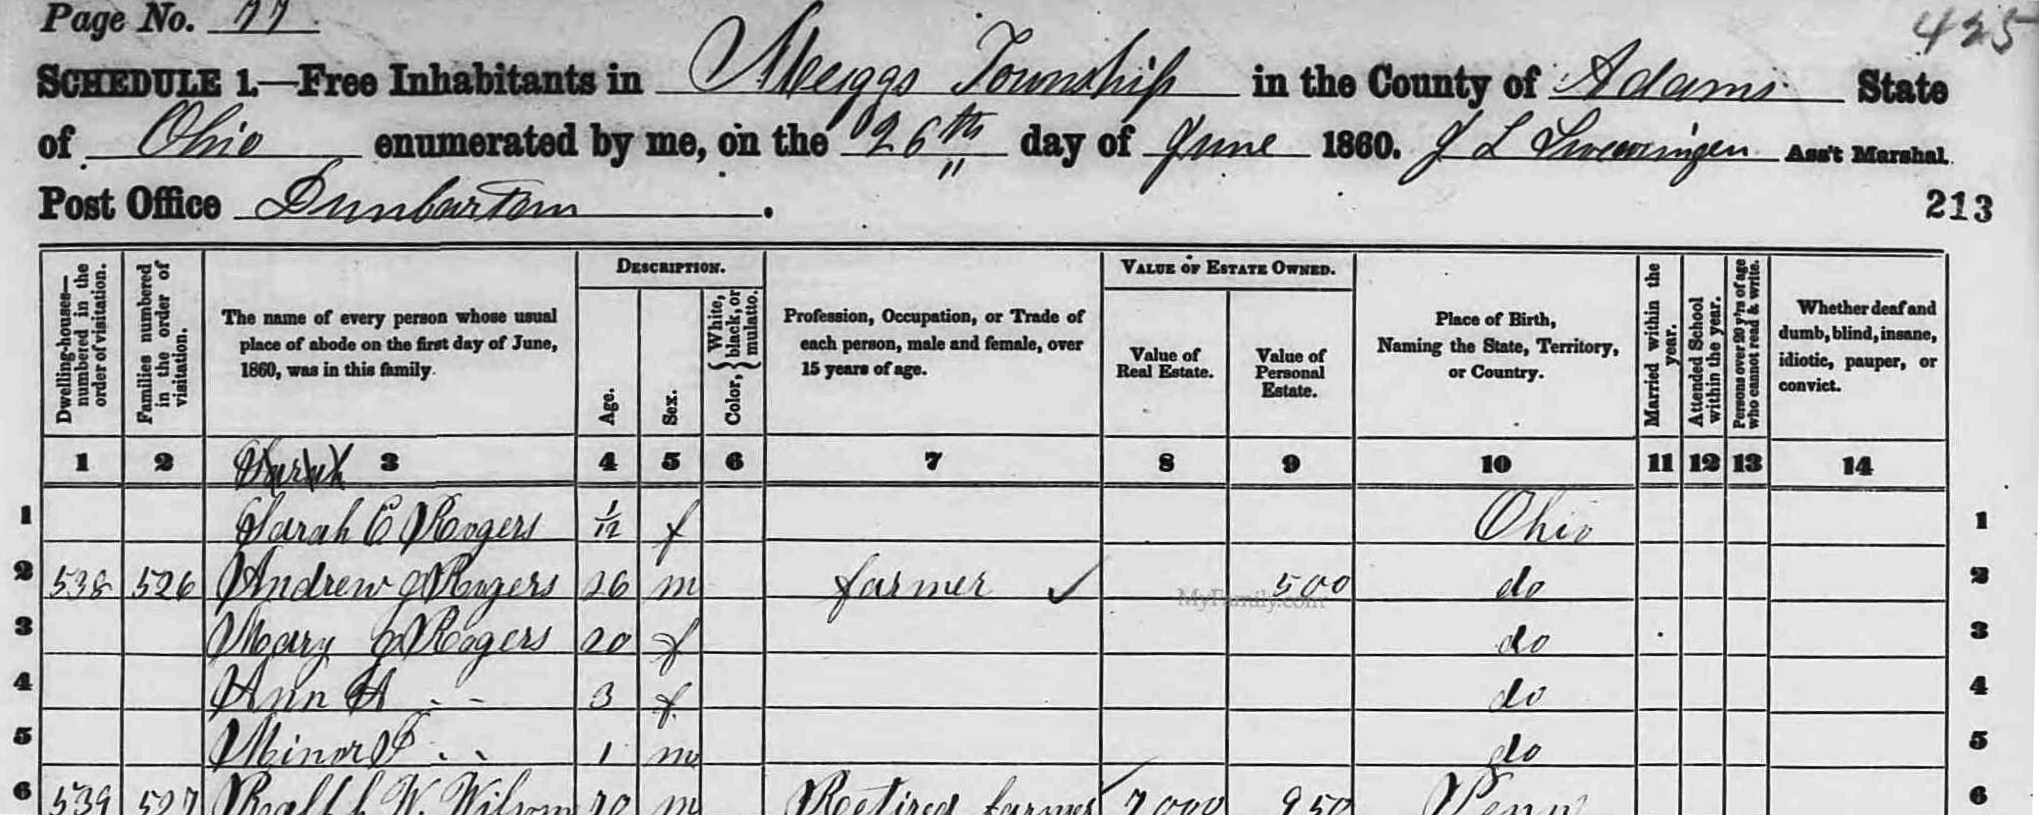 Page No. 77
425
SCHEDULE 1.—Free Inhabitants in Meigs Township in the County of Adams State
of Ohio enumerated by me, on the 26th day of June 1860. J L Swearingen Ass't Marshal.
Post Office Dunbarton.
213
DESCRIPTION.
VALUE OF ESTATE OWNED.
Dwelling-houses—numbered in the order of visitation.
Families numbered in the order of visitation.
The name of every person whose usual
place of abode on the first day of June,
1860, was in this family.
Age.
Sex.
Color, { White, black, or mulatto.
Profession, Occupation, or Trade of
each person, male and female, over
15 years of age.
Value of
Real Estate.
Value of
Personal
Estate.
Place of Birth,
Naming the State, Territory,
or Country.
Married within the year.
Attended School within the year.
Persons over 20 y'rs of age who cannot read & write.
Whether deaf and
dumb, blind, insane,
idiotic, pauper, or
convict.
1 2 Sarah 3 4 5 6 7 8 9 10 11 12 13 14
1 Sarah E Rogers 1/12 f Ohio 1
2 538 526 Andrew J Rogers 26 m farmer ✓ 500 do 2
MyFamily.com
3 Mary Rogers 20 f do 3
4 Ann A " " 3 f do 4
5 Minor F " " 1 m do 5
6 539 527 Ralph W. Wilson 70 m Retired farmer 7000 950 Penn 6